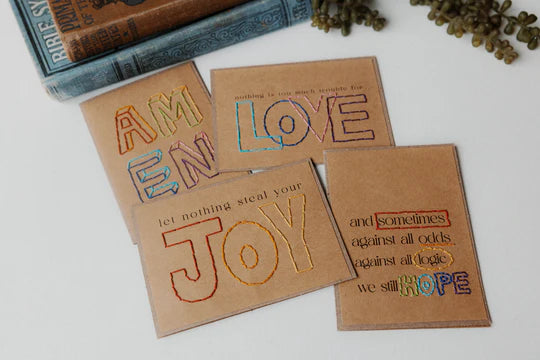 AM
EN
nothing is too much trouble for
LOVE
let nothing steal your
JOY
and sometimes
against all odds
against all logic
we still HOPE